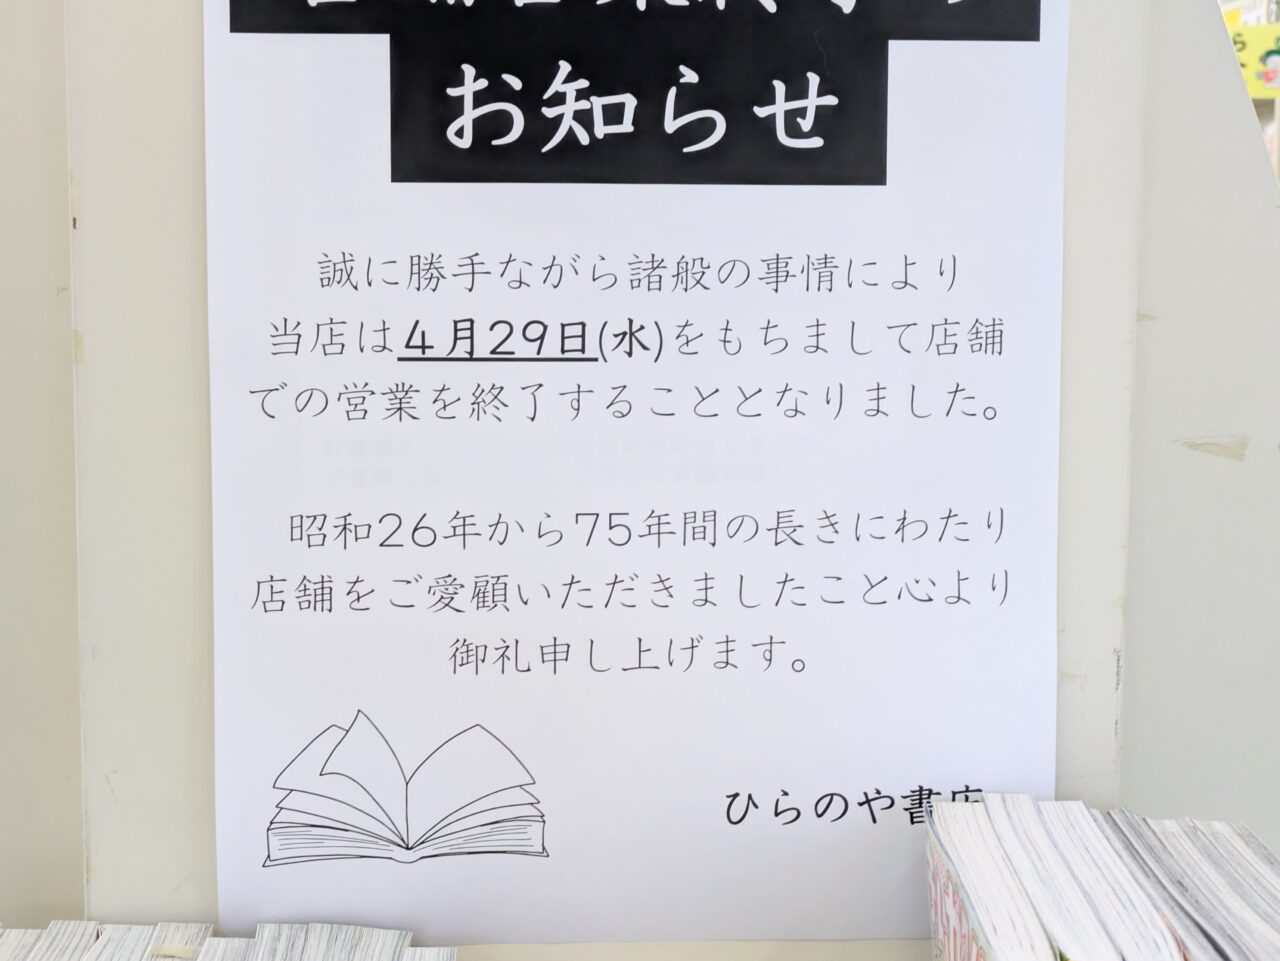 お知らせ
誠に勝手ながら諸般の事情により
当店は4月29日(水)をもちまして店舗
での営業を終了することとなりました。
昭和26年から75年間の長きにわたり
店舗をご愛顧いただきましたこと心より
御礼申し上げます。
ひらのや書店